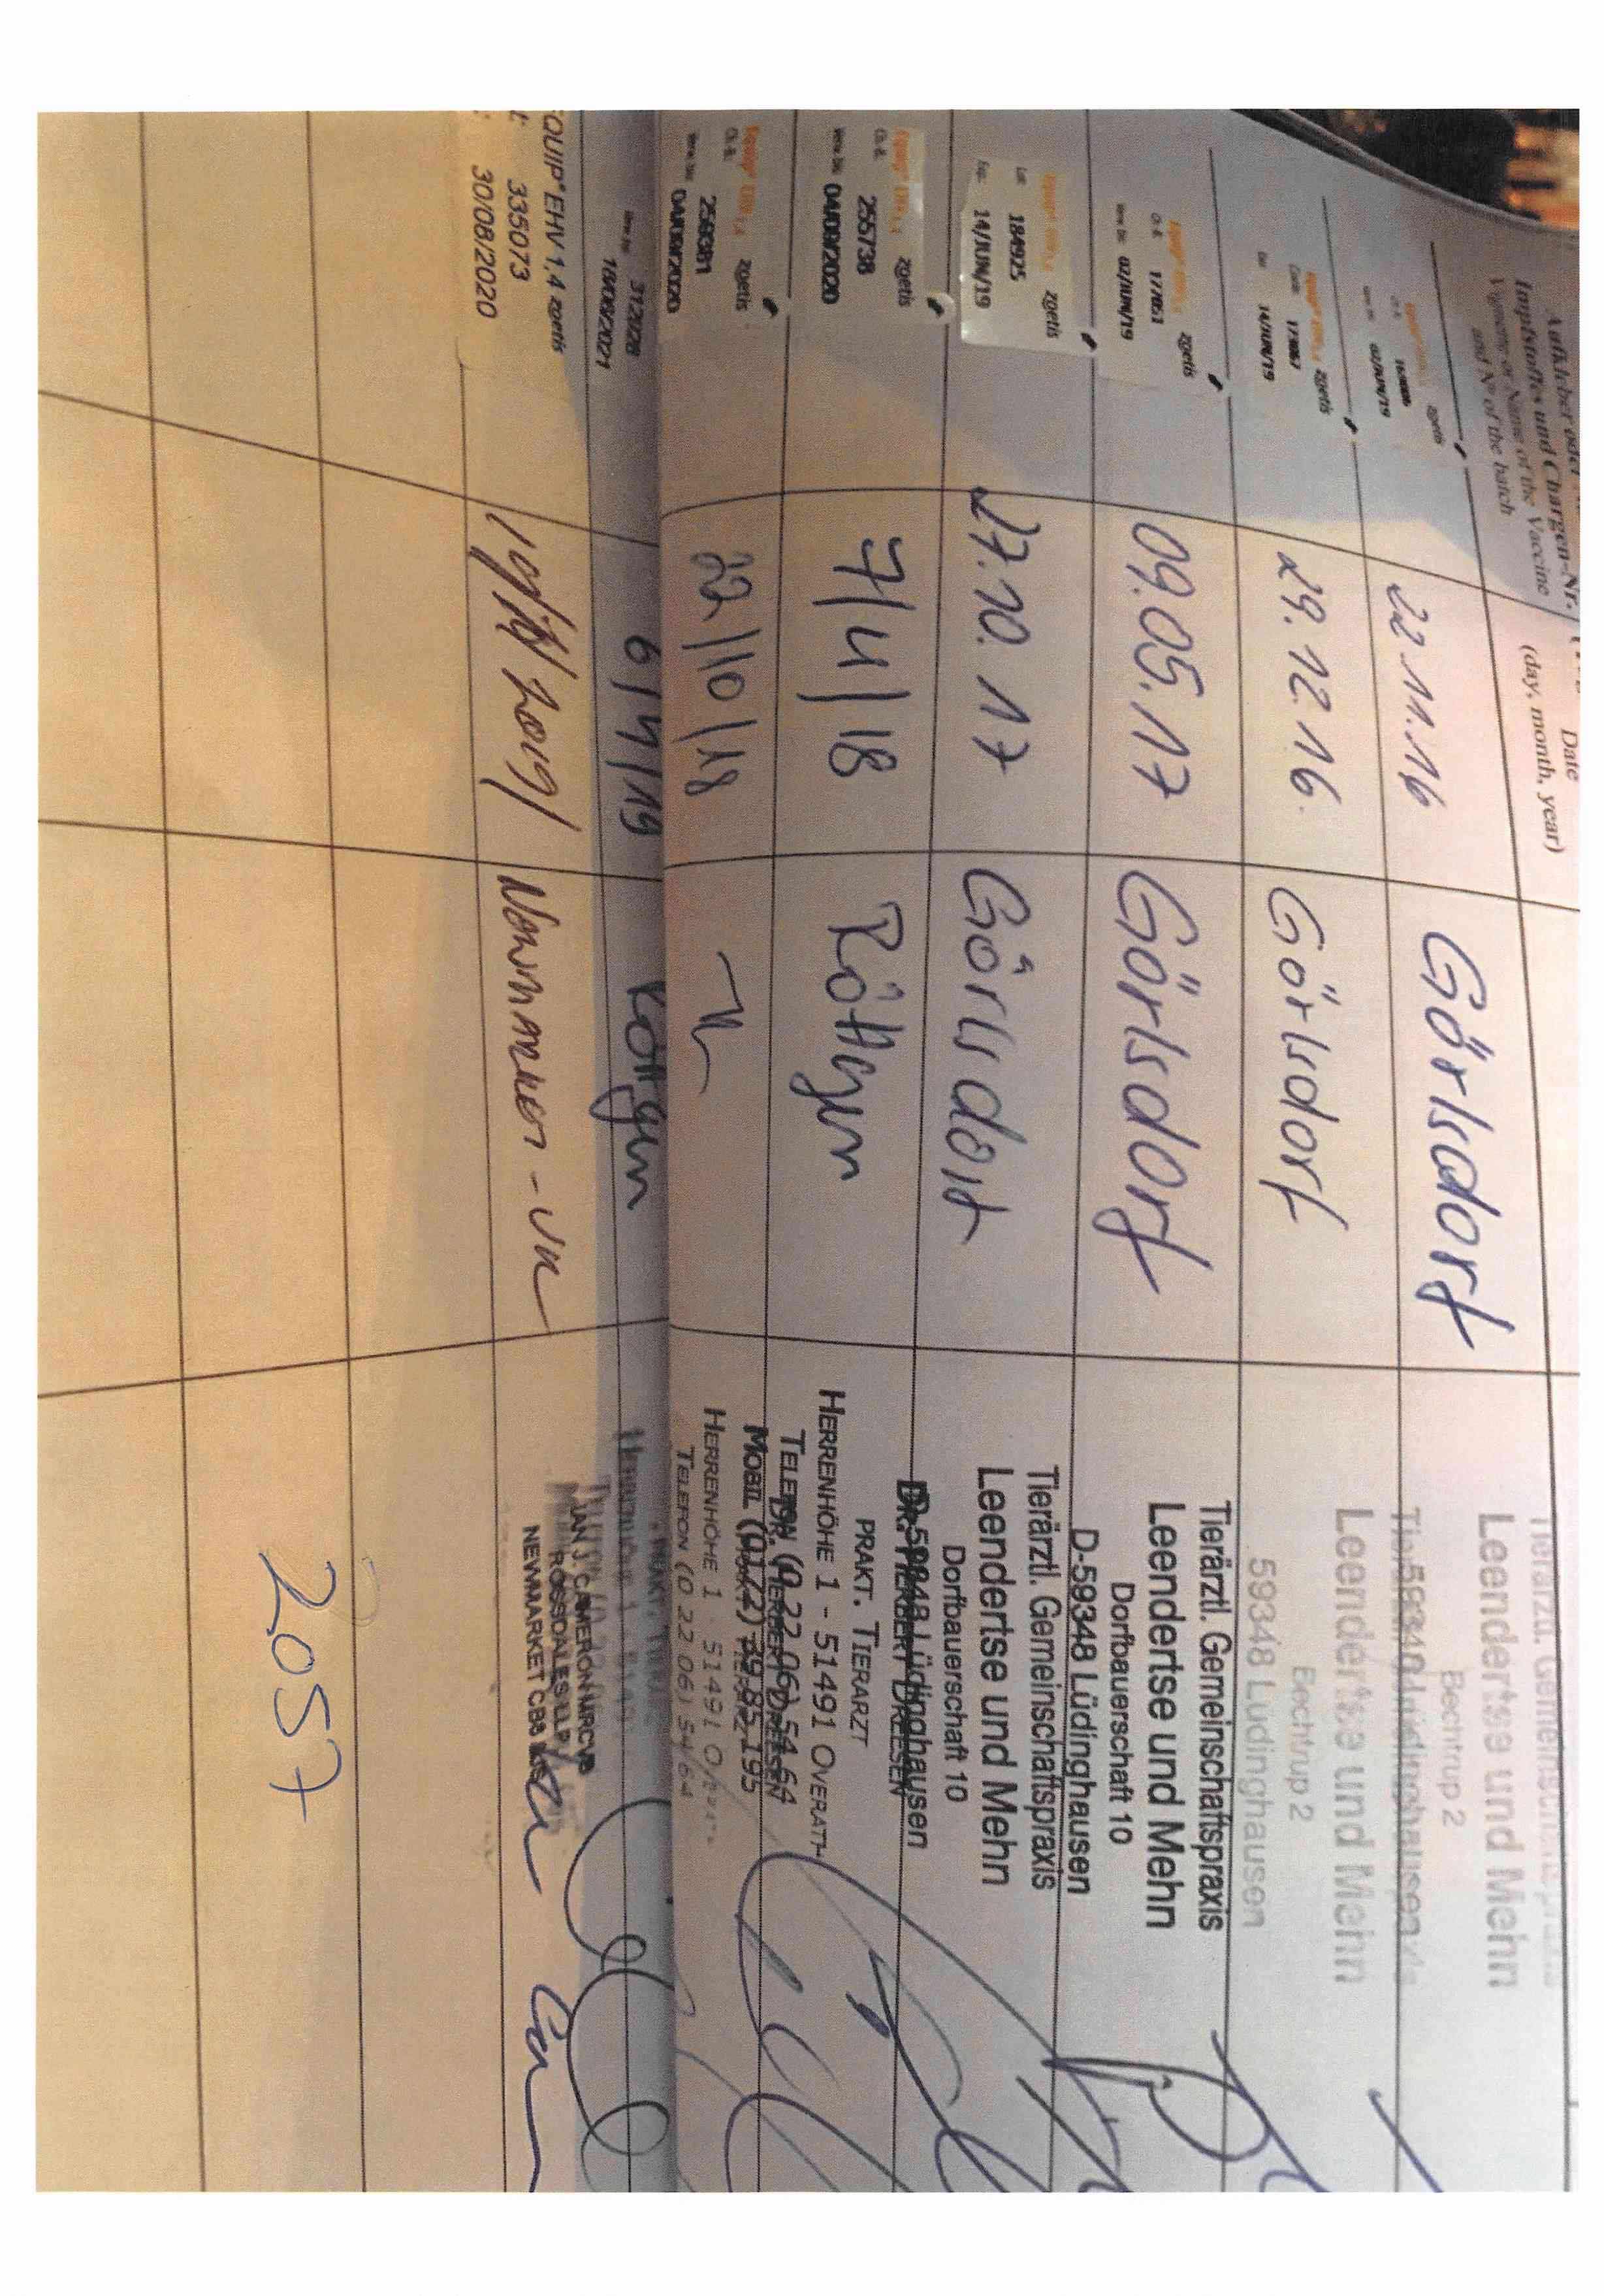 Impfstoffes und Chargen-Nr.
Vignette or Name of the Vaccine
and Nº of the batch
Date
(day, month, year)
zoetis
02/JUN/19
22.11.16
Görlsdorf
Leendertse und Mehn
Bechtrup 2
zoetis
14/JUN/19
29.12.16.
Görlsdorf
Leendertse und Mehn
Bechtrup 2
59348 Lüdinghausen
zoetis
Ch.-B. 177053
Verw. bis: 02/JUN/19
09.05.17
Görlsdorf
Tierärztl. Gemeinschaftspraxis
Leendertse und Mehn
Dorfbauerschaft 10
D-59348 Lüdinghausen
zoetis
Lot 184925
Exp.: 14/JUN/19
27.10.17
Görlsdorf
Tierärztl. Gemeinschaftspraxis
Leendertse und Mehn
Dorfbauerschaft 10
D-59348 Lüdinghausen
zoetis
Ch.-B. 255738
Verw. bis: 04/08/2020
7/4/18
Röttgen
DR. HERBERT DREESEN
PRAKT. TIERARZT
HERRENHÖHE 1 - 51491 OVERATH
TELEFON (0 22 06) 54 64
MOBIL (0172) 29 85 195
zoetis
Ch.-B. 258381
Verw. bis: 04/08/2020
22/10/18
DR. HERBERT DREESEN
HERRENHÖHE 1 - 51491
TELEFON (0 22 06) 54 64
312028
18/08/2021
6/4/19
Röttgen
EQUIP® EHV 1,4 zoetis
335073
30/08/2020
2019
Newmarket - UK
IAN J. CAMERON MRCVS
ROSSDALES LLP
NEWMARKET CB8
2057